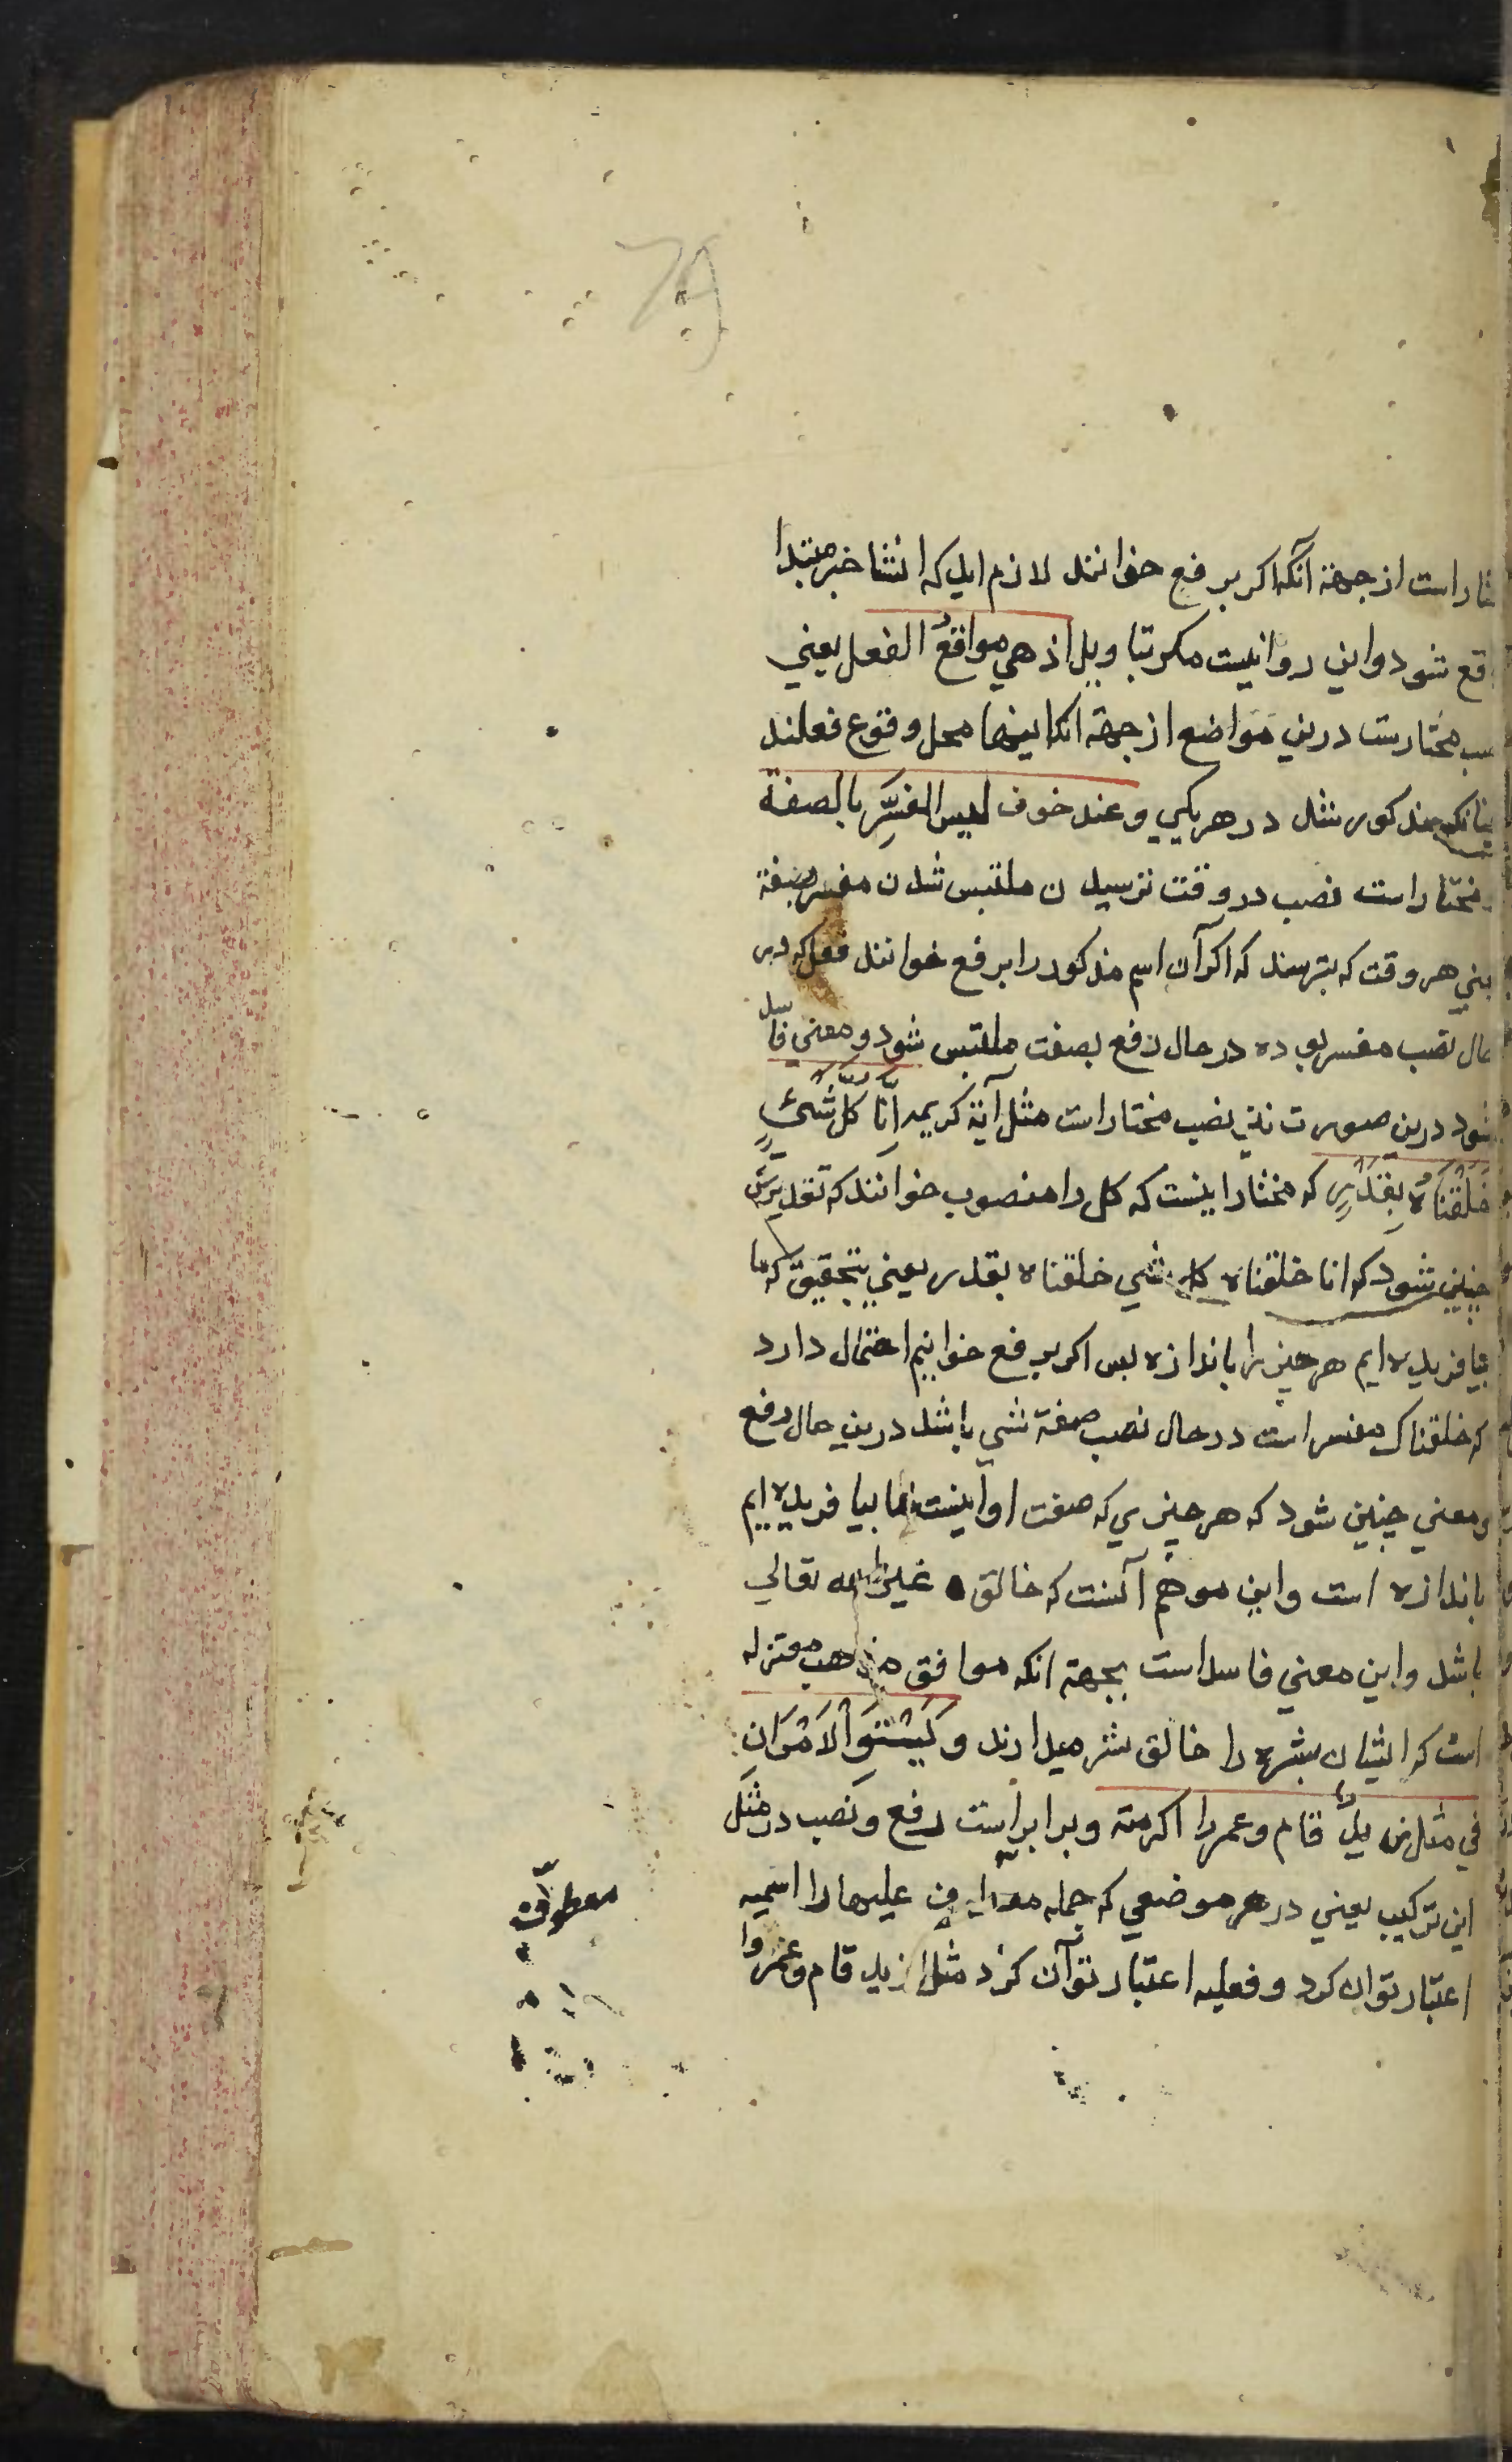 ختار است از جهة آنکه اکر برفع خوانند لازم اید که انشا خبر مبتدا
واقع شود واین روا نیست مکر بتاویل اذ هي مواقع الفعل یعني
نصب مختارست درین مواضع از جهة انکه اینها محل وقوع فعلند
چنانکه مذکور شد در هر یکي وعند خوف لبس المفسِّر بالصفة
و مختار است نصب در وقت ترسیدن ملتبس شدن مفسر بصفة
یعني هر وقت که بترسند که اکر آن اسم مذکور را برفع خوانند فعل که در
حال نصب مفسر بوده در حال رفع بصفت ملتبس شود ومعني فاسد
شود درین صورت نیز نصب مختار است مثل آیة کریمه اِنَّا کُلَّ شَيْءٍ
خَلَقْنَاهُ بِقَدَرٍ که مختار اینست که کل را منصوب خوانند که تقدیرش
چنین شود که انا خلقناه کل شي خلقناه بقدر یعني بتحقیق که ما
بیافریده ایم هر چیز را باندازه پس اکر برفع خوانیم احتمال دارد
که خلقناه که مفسر است در حال نصب صفة شي باشد درین حال رفع
و معني چنین شود که هر چیزي که صفت او اینست ما بیافریده ایم
باندازه است واین موهم آنست که خالق غیر الله تعالي
باشد واین معني فاسد است بجهة انکه موافق مذهب معتزله
است که ایشان بشر را خالق شر میدارند وَیَسْتَوِ الْاَمْرَانِ
في مثل زیدٌ قام وعمرا اکرمته وبرابر است رفع ونصب در مثل
این ترکیب یعني در هر موضعي که جمله علیها را اسمیه
اعتبار توان کرد و فعلیه اعتبار توان کرد مثل زید قام وعمروا
معطوف